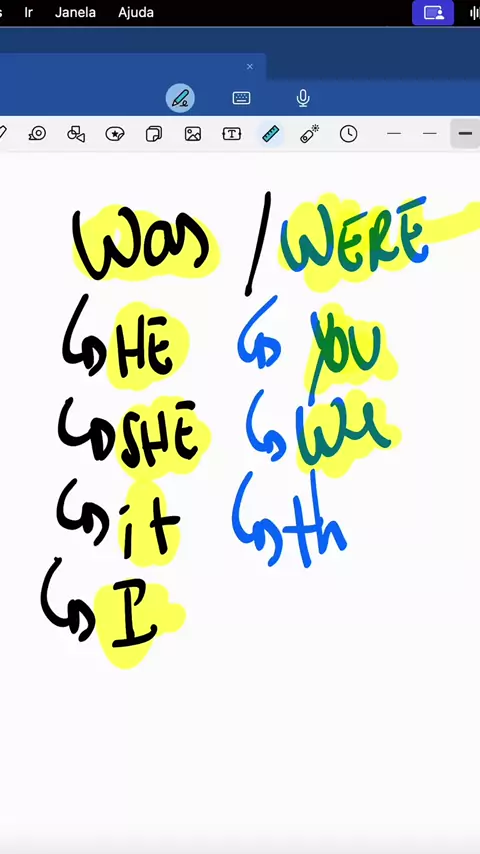 Ir Janela Ajuda
Was / WERE
HE YOU
SHE We
it th
I